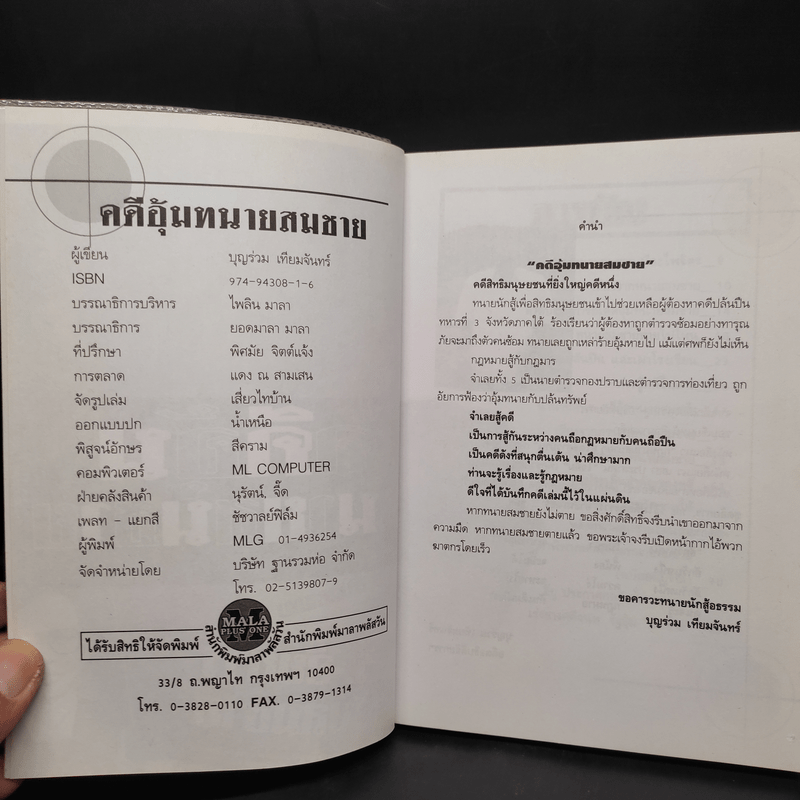 คดีอุ้มทนายสมชาย
ผู้เขียน บุญร่วม เทียมจันทร์
ISBN 974-94308-1-6
บรรณาธิการบริหาร ไพลิน มาลา
บรรณาธิการ ยอดมาลา มาลา
ที่ปรึกษา พิศมัย จิตต์แจ้ง
การตลาด แดง ณ สามเสน
จัดรูปเล่ม เสี่ยวไทบ้าน
ออกแบบปก น้ำเหนือ
พิสูจน์อักษร สีคราม
คอมพิวเตอร์ ML COMPUTER
ฝ่ายคลังสินค้า นุรัตน์, จี๊ด
เพลท - แยกสี ชัชวาลย์ฟิล์ม
ผู้พิมพ์ MLG 01-4936254
จัดจำหน่ายโดย บริษัท ฐานรวมห่อ จำกัด
โทร. 02-5139807-9
MALA
PLUS ONE
สำนักพิมพ์มาลาพลัสวัน
ได้รับสิทธิให้จัดพิมพ์ สำนักพิมพ์มาลาพลัสวัน
33/8 ถ.พญาไท กรุงเทพฯ 10400
โทร. 0-3828-0110 FAX. 0-3879-1314
คำนำ
"คดีอุ้มทนายสมชาย"
คดีสิทธิมนุษยชนที่ยิ่งใหญ่คดีหนึ่ง
ทนายนักสู้เพื่อสิทธิมนุษยชนเข้าไปช่วยเหลือผู้ต้องหาคดีปล้นปืน
ทหารที่ 3 จังหวัดภาคใต้ ร้องเรียนว่าผู้ต้องหาถูกตำรวจซ้อมอย่างทารุณ
ภัยจะมาถึงตัวคนซ้อม ทนายเลยถูกเหล่าร้ายอุ้มหายไป แม้แต่ศพก็ยังไม่เห็น
กฎหมายสู้กับกฎมาร
จำเลยทั้ง 5 เป็นนายตำรวจกองปราบและตำรวจการท่องเที่ยว ถูก
อัยการฟ้องว่าอุ้มทนายกับปล้นทรัพย์
จำเลยสู้คดี
เป็นการสู้กันระหว่างคนถือกฎหมายกับคนถือปืน
เป็นคดีดังที่สนุกตื่นเต้น น่าศึกษามาก
ท่านจะรู้เรื่องและรู้กฎหมาย
ดีใจที่ได้บันทึกคดีเล่มนี้ไว้ในแผ่นดิน
หากทนายสมชายยังไม่ตาย ขอสิ่งศักดิ์สิทธิ์จงรีบนำเขาออกมาจาก
ความมืด หากทนายสมชายตายแล้ว ขอพระเจ้าจงรีบเปิดหน้ากากไอ้พวก
ฆาตกรโดยเร็ว
ขอคารวะทนายนักสู้อธรรม
บุญร่วม เทียมจันทร์